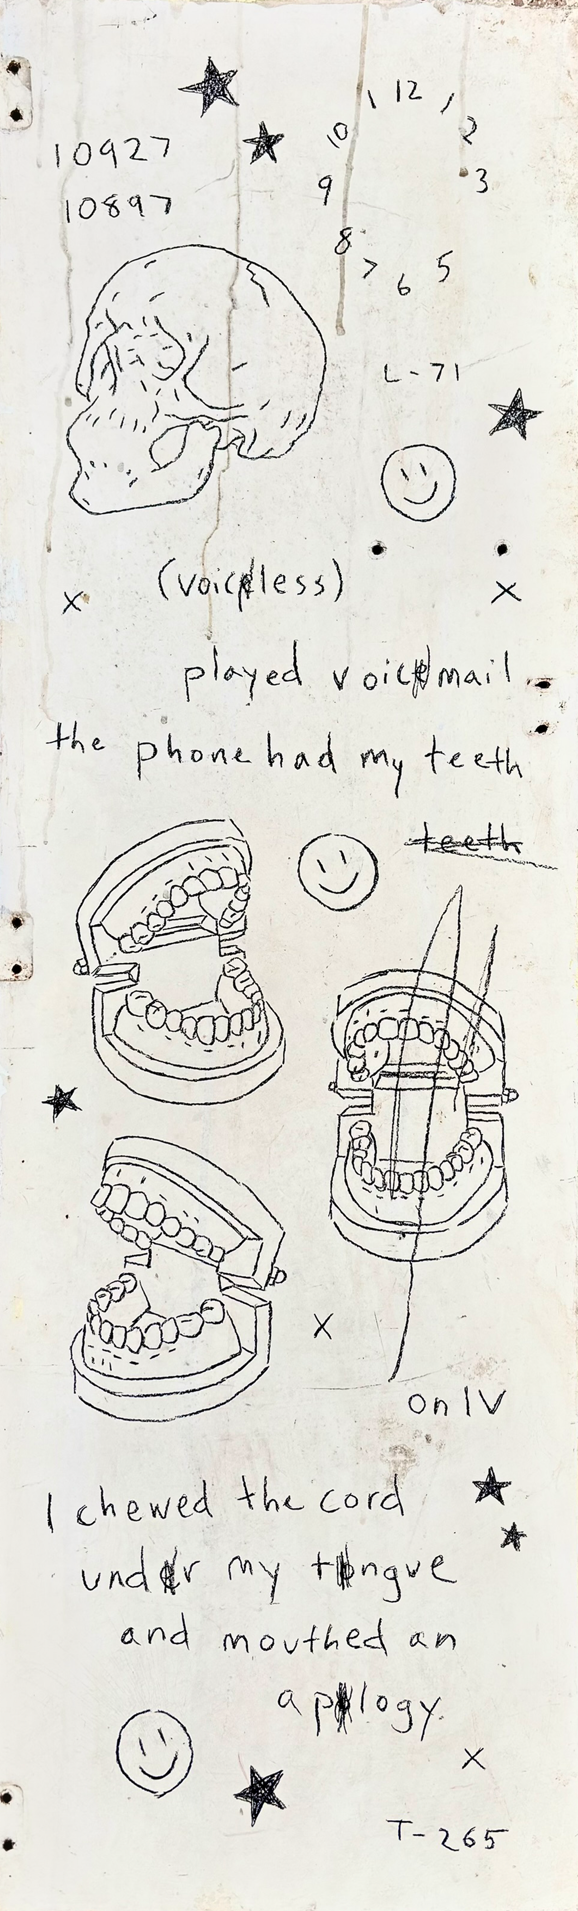 1 12 1
10927
10 2
10897
9 3
8
7 6 5
L-71
x (voiceless) x
played voicemail
the phone had my teeth
teeth
x
on IV
I chewed the cord
under my tongue
and mouthed an
apology.
x
T-265